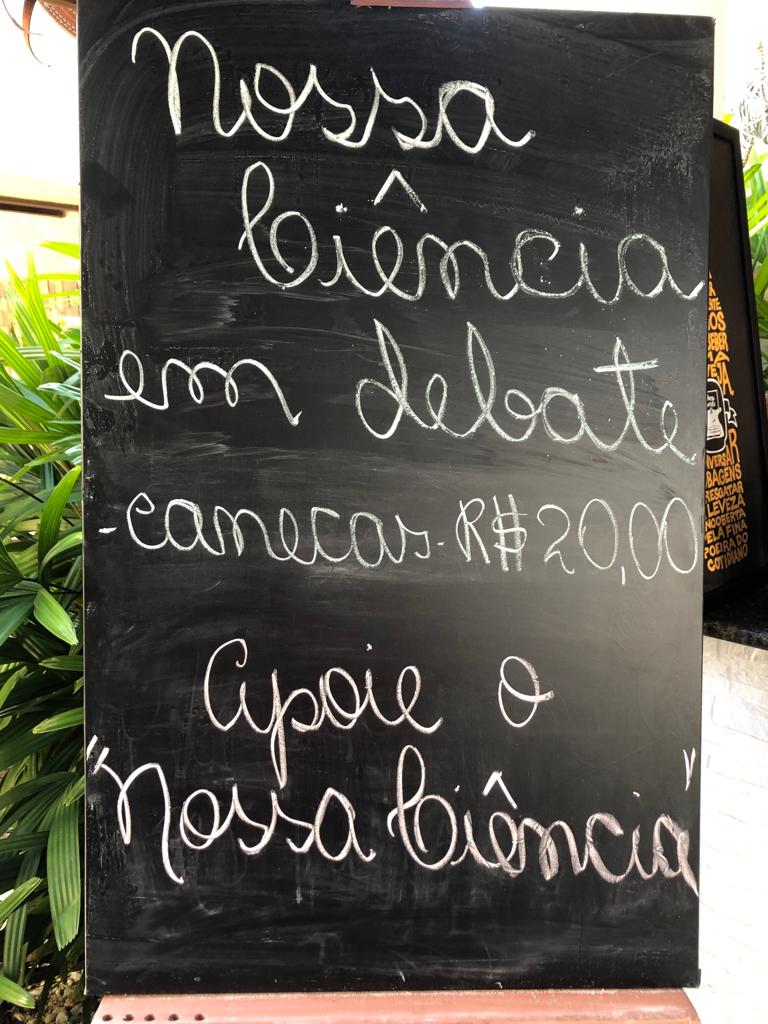 Nossa
Ciência
em debate
-canecas-R$20,00
Apoie o
"Nossa Ciência"
OS
TA
AR
BAGENS
RESGATAR
LEVEZA
ELA FINA
POEIRA DO
COTIDIANO